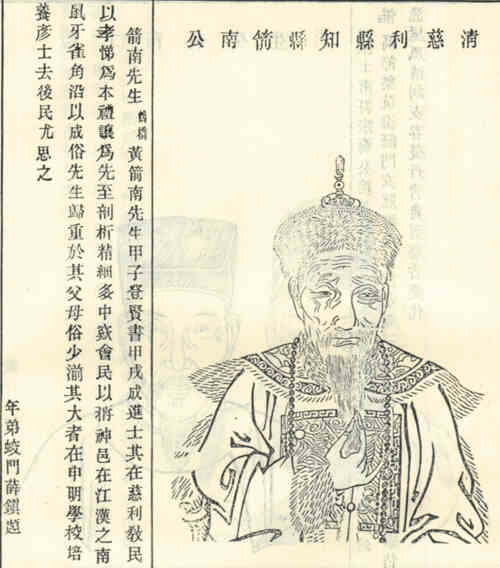 清慈利縣知縣箭南公
箭南先生 黃箭南先生甲子登賢書甲戌成進士其在慈利敎民
以孝悌爲本禮讓爲先至剖析精細多中欵會民以將神邑在江漢之南
鼠牙雀角沿以成俗先生歸重於其父母俗少湔其大者在申明學校培
養彥士去後民尤思之
年弟蛟門薛鎮題